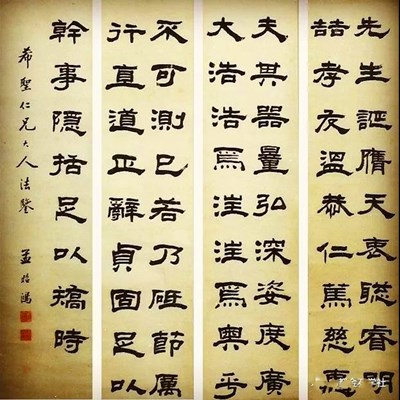 先生誕膺天衷聰睿明
喆孝友溫恭仁篤慈惠
夫其器量弘深姿度廣
大浩浩焉汪汪焉奧乎
不可測已若乃砥節厲
行直道正辭貞固足以
幹事隱括足以矯時
希聖仁兄大人法鑒 孟